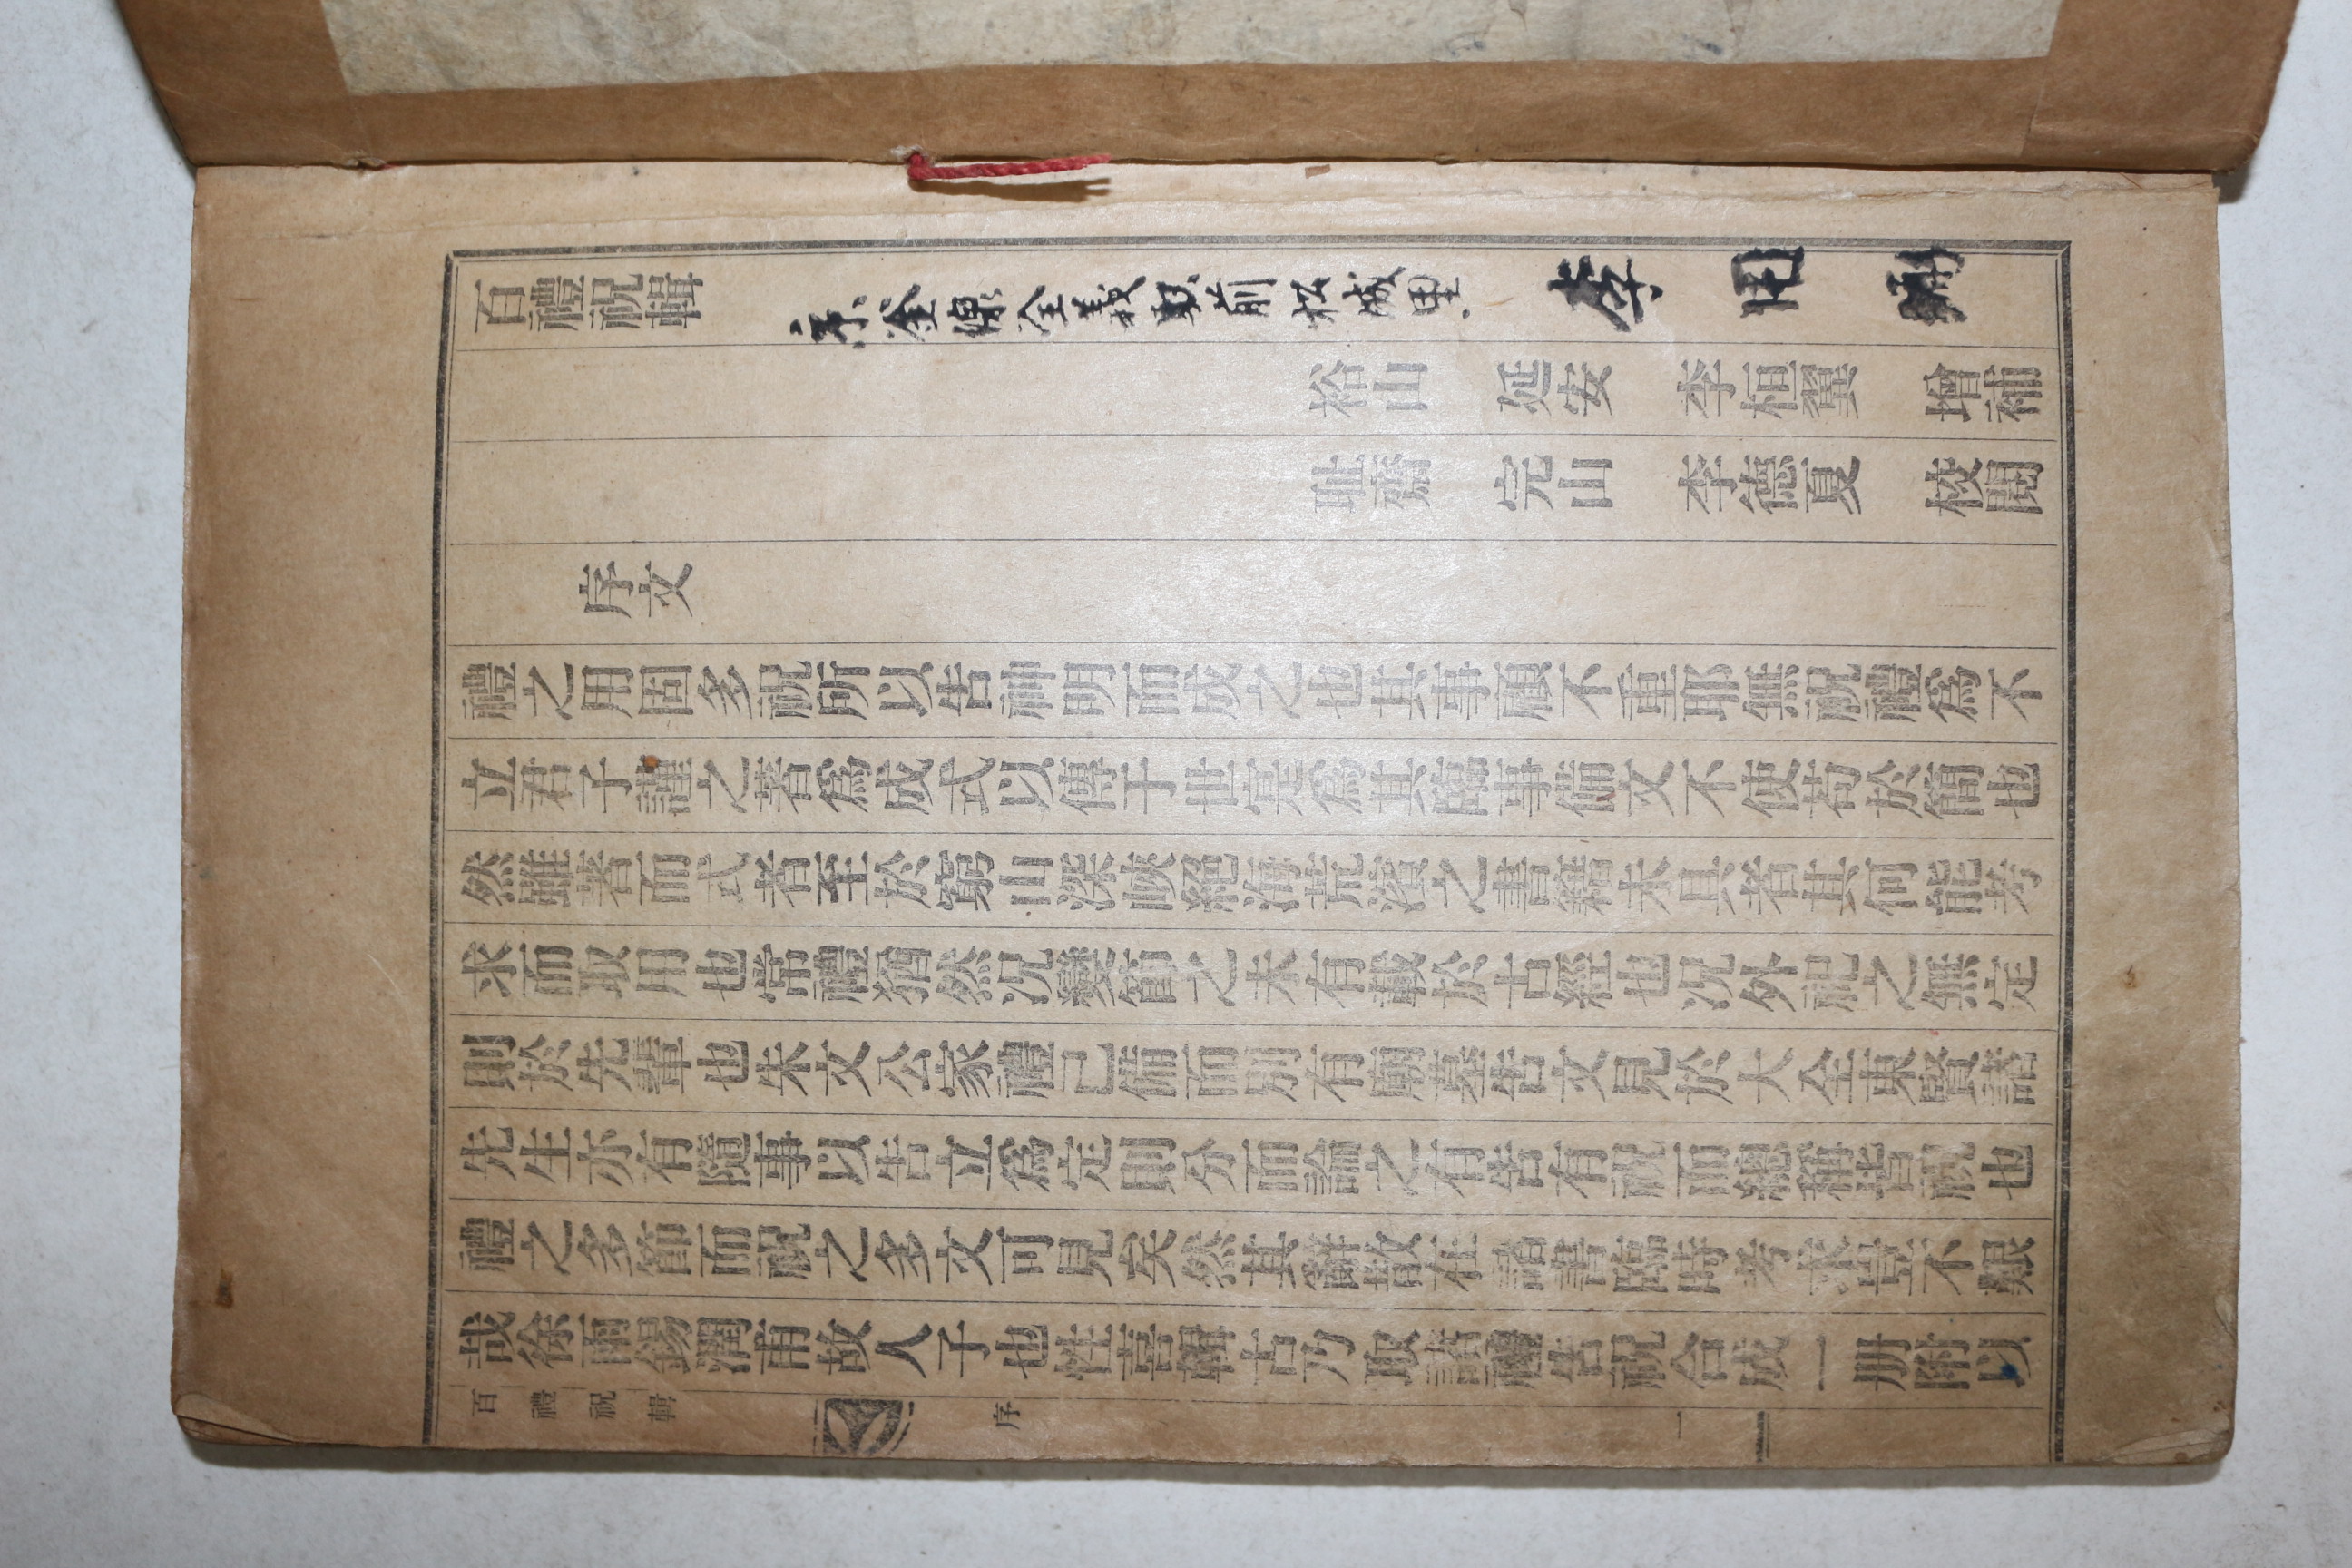 百禮祝輯
金縣全義面前松城里 李用
裕山 延安 李恒翼 增補
恥齋 完山 李德夏 校閱
序文
禮之用固多祝所以告神明而成之也其事顧不重耶無祝禮爲不
立君子謹之著爲成式以傳于世是爲其臨事備文不使苟於簡也
然雖著而式者至於窮山深峽絕海荒濱之書籍未具者其何能考
求而取用也常禮猶然況變節之未有載於古經也況外記之無定
則於先輩也朱文公家禮已備而別有朔望告文見於大全東賢諸
先生亦有隨事以告立爲定則分而論之有告有祝而總稱皆祝也
禮之多節而祝之多文可見矣然其解散在諸書臨時考求豈不艱
哉徐雨錫潤甫故人子也性喜稽古乃取諸禮告祝合成一册附以
百禮祝輯 序 一